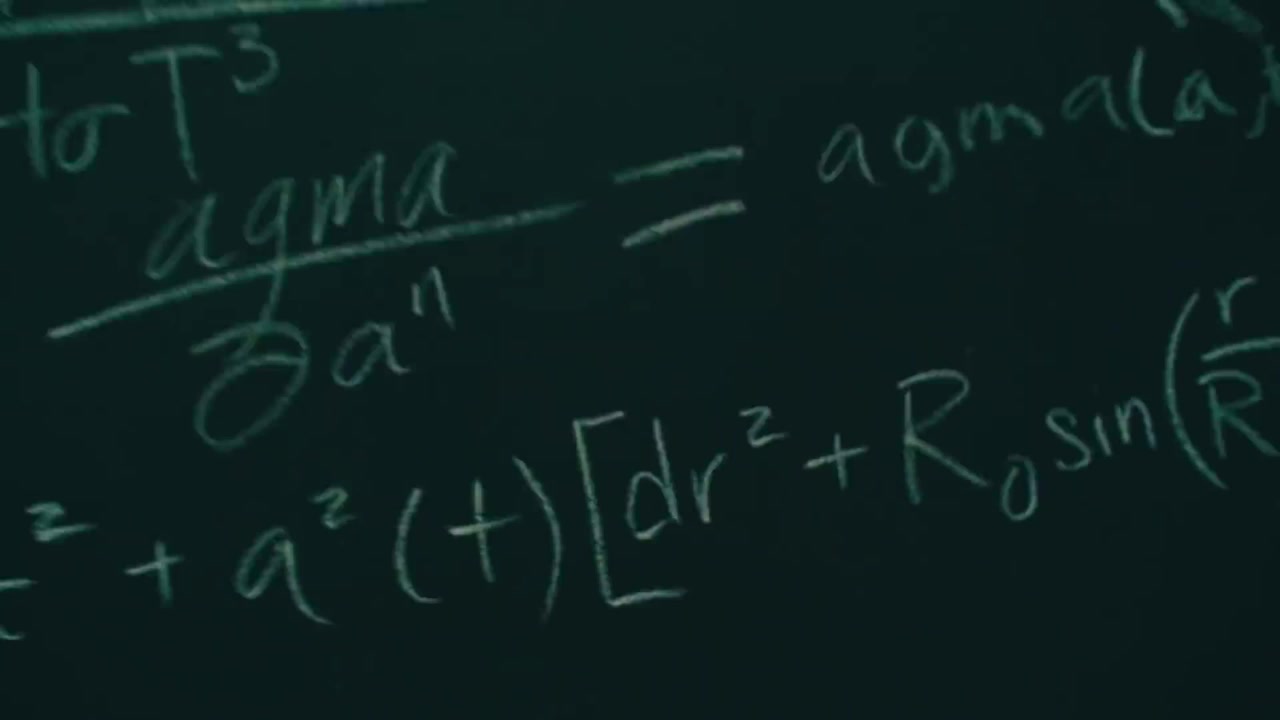 to T³
agma = agma(a,
∂aⁿ
² + a²(t)[dr² + R₀ sin(r
R